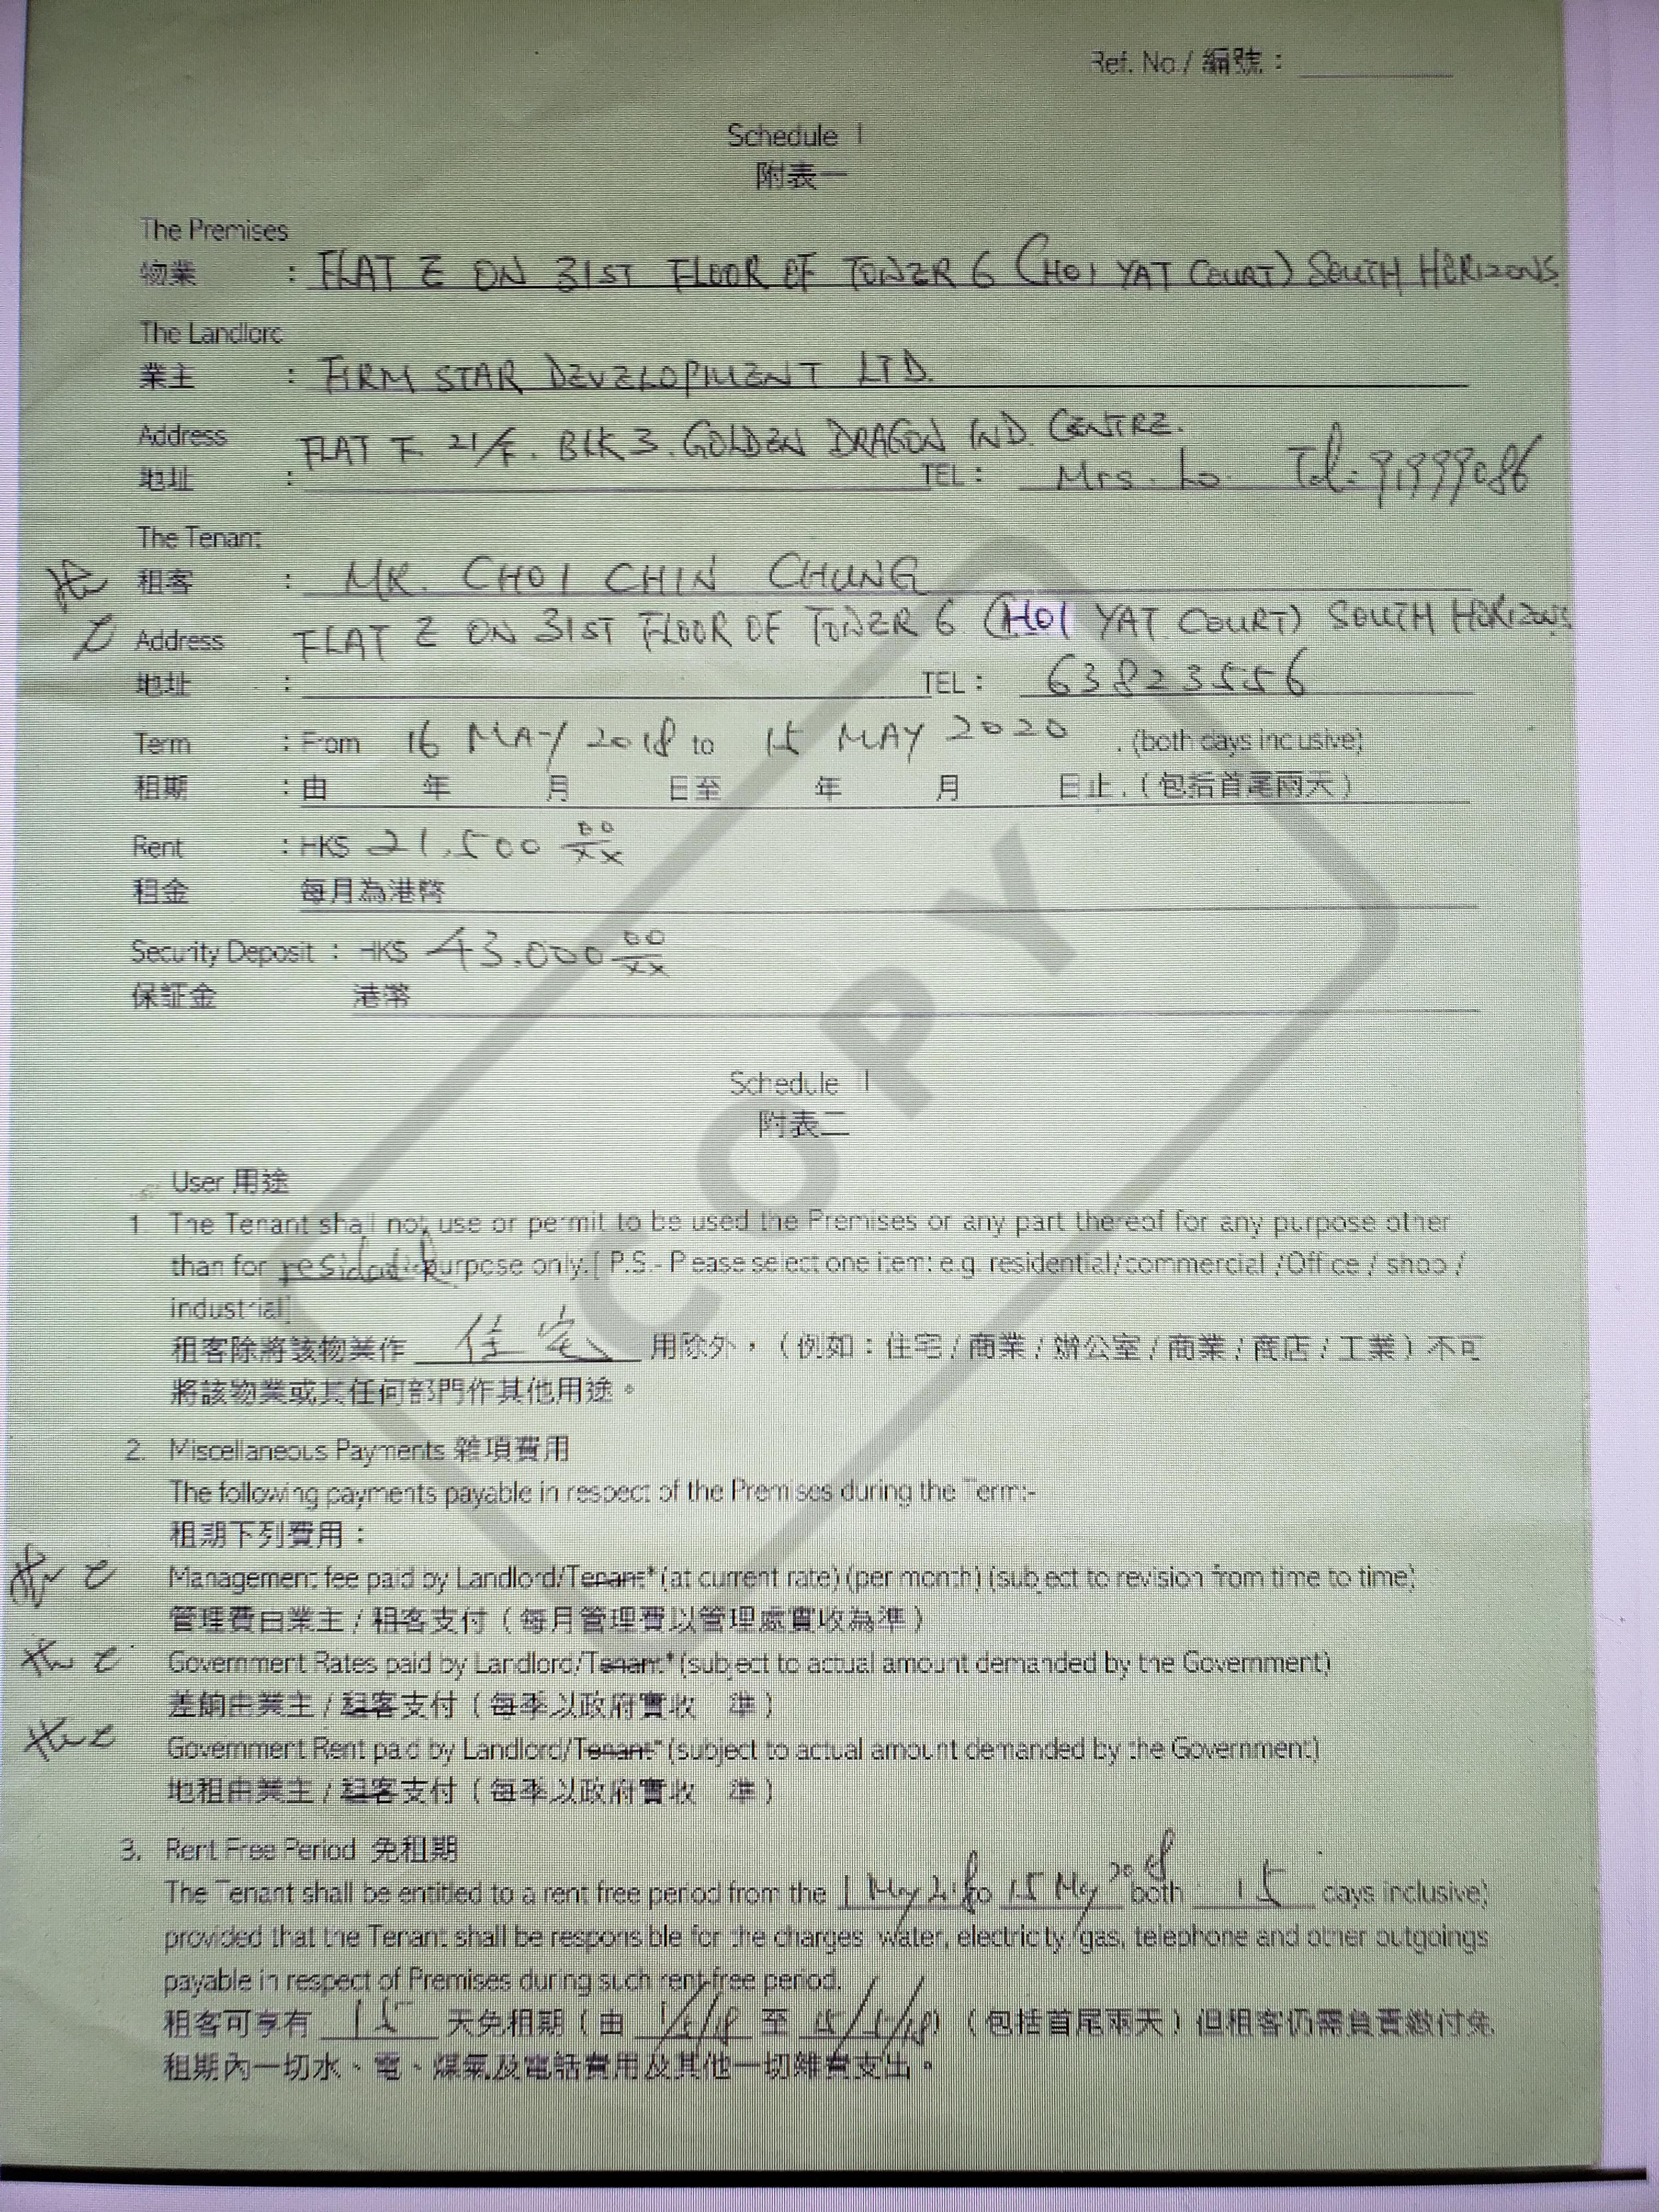 Ref. No./ 編號：
Schedule I
附表一
The Premises
物業 : FLAT E ON 31ST FLOOR OF TOWER 6 (HOI YAT COURT) SOUTH HORIZONS.
The Landlord
業主 : FIRM STAR DEVELOPMENT LTD.
Address FLAT F 21/F. BLK 3. GOLDEN DRAGON IND. CENTRE.
地址 : TEL : Mrs. Lo. Tel: 91999086
The Tenant
租客 : MR. CHOI CHIN CHUNG
Address FLAT E ON 31ST FLOOR OF TOWER 6 (HOI YAT COURT) SOUTH HORIZONS
地址 : TEL : 63823556
Term : From 16 MAY 2018 to 15 MAY 2020 . (both days inclusive)
租期 : 由 年 月 日至 年 月 日止.（包括首尾兩天）
Rent : HK$ 21,500 00/xx
租金 每月為港幣
Security Deposit : HK$ 43,000 00/xx
保証金 港幣
Schedule I
附表二
User 用途
1. The Tenant shall not use or permit to be used the Premises or any part thereof for any purpose other
than for residential purpose only.[ P.S.- Please select one item: e.g. residential/commercial /Office / shop /
industrial]
租客除將該物業作 住宅 用除外，（例如：住宅/商業/辦公室/商業/商店/工業）不可
將該物業或其任何部門作其他用途。
2. Miscellaneous Payments 雜項費用
The following payments payable in respect of the Premises during the Term:-
租期下列費用：
Management fee paid by Landlord/Tenant* (at current rate) (per month) (subject to revision from time to time)
管理費由業主/租客支付（每月管理費以管理處實收為準）
Government Rates paid by Landlord/Tenant* (subject to actual amount demanded by the Government)
差餉由業主/租客支付（每季以政府實收 準）
Government Rent paid by Landlord/Tenant* (subject to actual amount demanded by the Government)
地租由業主/租客支付（每季以政府實收 準）
3. Rent Free Period 免租期
The Tenant shall be entitled to a rent free period from the 1 May 2018 to 15 May 2018 both 15 days inclusive)
provided that the Tenant shall be responsible for the charges water, electricity, gas, telephone and other outgoings
payable in respect of Premises during such rent-free period.
租客可享有 15 天免租期（由 1/5/18 至 15/5/18）（包括首尾兩天）但租客仍需負責繳付免
租期內一切水、電、煤氣及電話費用及其他一切雜費支出。
COPY